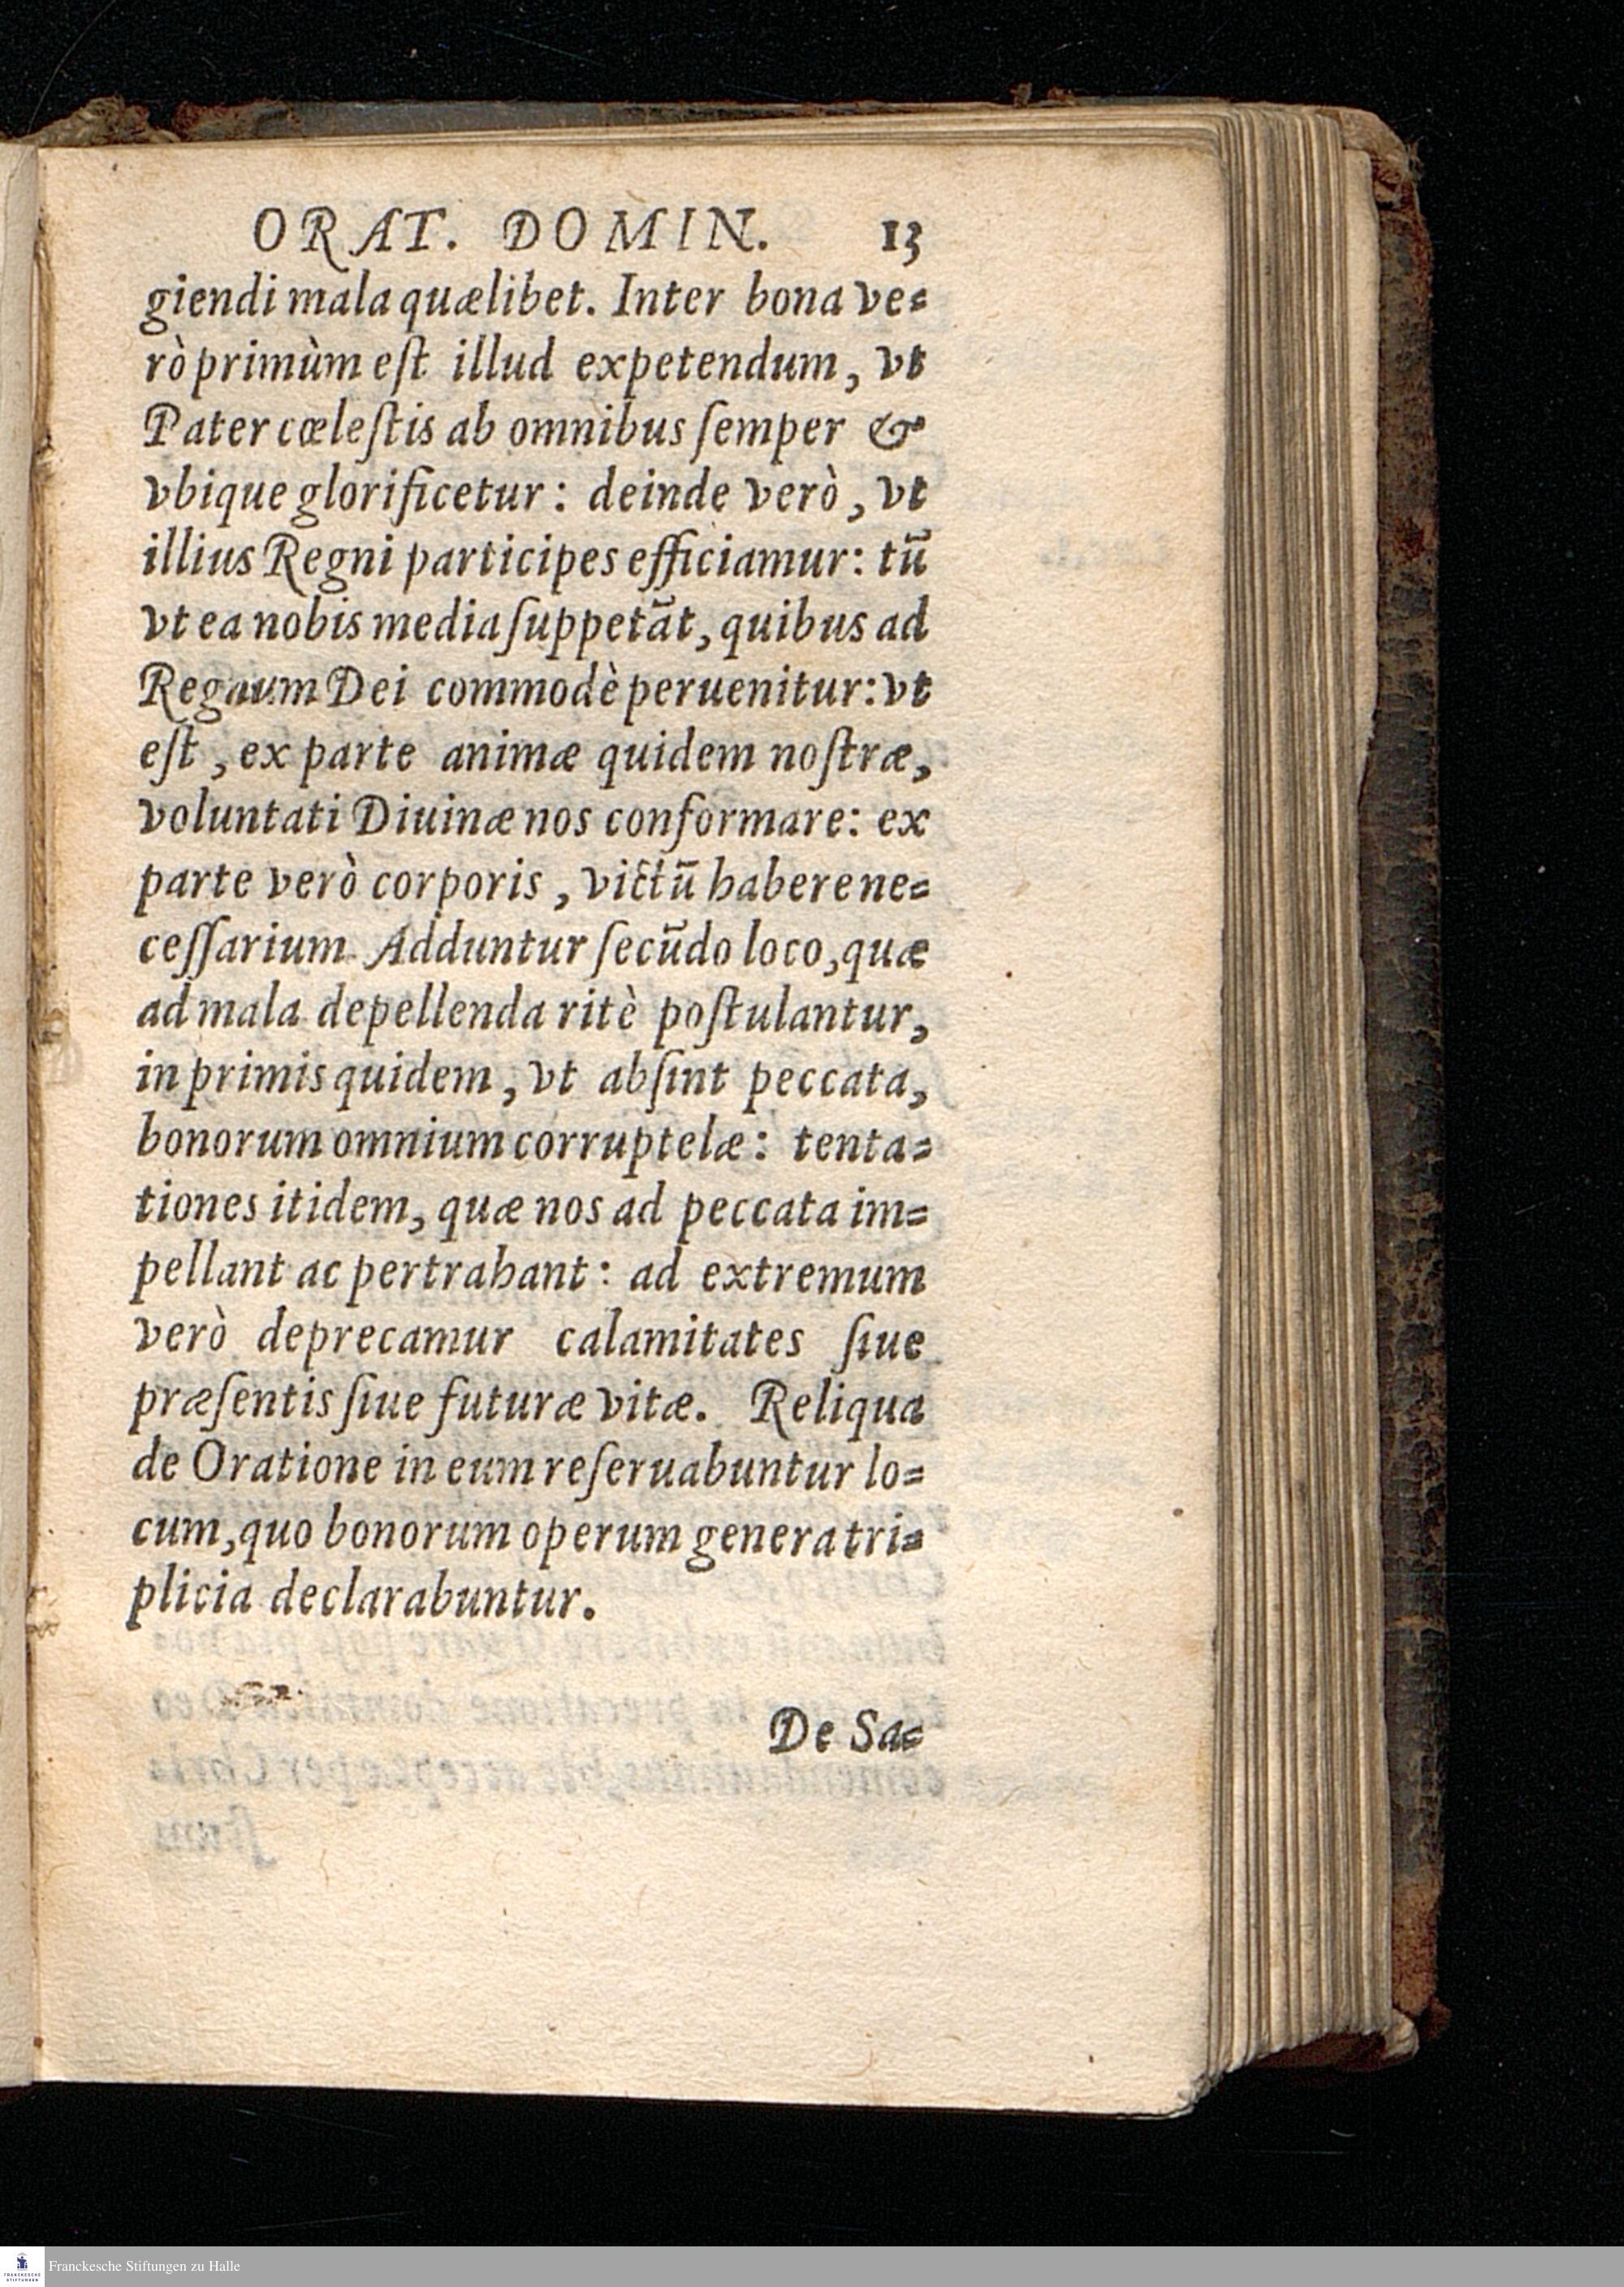 ORAT. DOMIN. 13
giendi mala quælibet. Inter bona ve=
rò primùm eſt illud expetendum, vt
Pater cœleſtis ab omnibus ſemper &
vbique glorificetur: deinde verò, vt
illius Regni participes efficiamur: tū
vt ea nobis media ſuppetāt, quibus ad
Regnum Dei commodè peruenitur: vt
eſt, ex parte animæ quidem noſtræ,
voluntati Diuinæ nos conformare: ex
parte verò corporis, victū habere ne=
ceſſarium. Adduntur ſecūdo loco, quæ
ad mala depellenda ritè poſtulantur,
in primis quidem, vt abſint peccata,
bonorum omnium corruptelæ: tenta=
tiones itidem, quæ nos ad peccata im=
pellant ac pertrahant: ad extremum
verò deprecamur calamitates ſiue
præſentis ſiue futuræ vitæ. Reliqua
de Oratione in eum reſeruabuntur lo=
cum, quo bonorum operum genera tri=
plicia declarabuntur.
De Sa=
Franckesche Stiftungen zu Halle